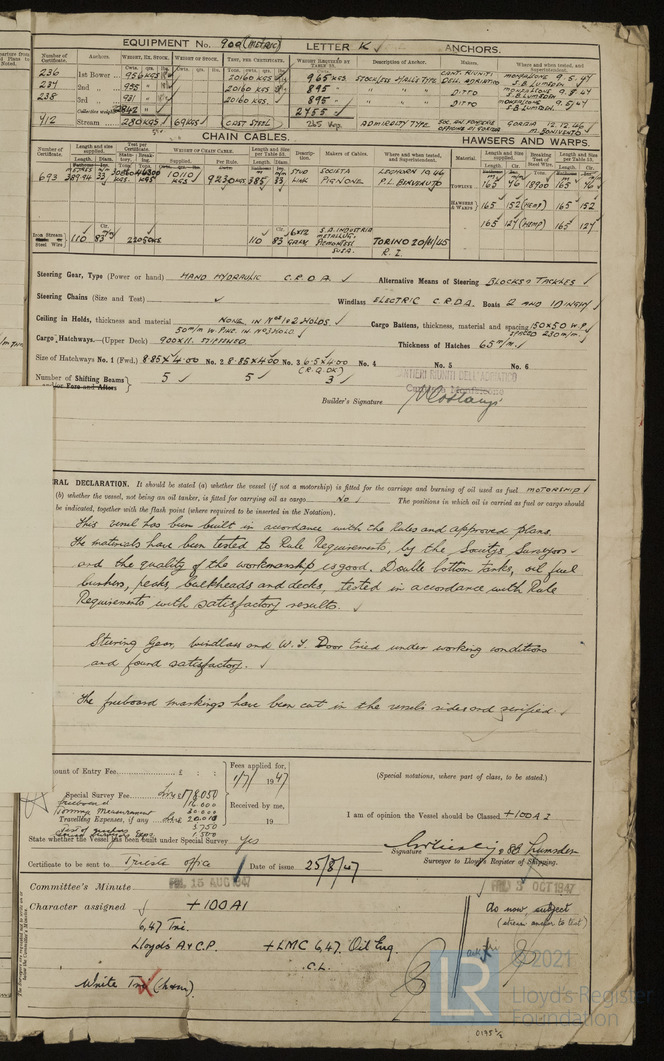 EQUIPMENT No. 900 (METRIC) LETTER K ANCHORS.
Number of Certificate. Anchors. WEIGHT, EX. STOCK. WEIGHT OF STOCK. TEST, PER CERTIFICATE. WEIGHT REQUIRED BY TABLE 53. Description of Anchor. Makers. Where and when tested, and Superintendent.
236 1st Bower 956 KGS 20160 KGS 965 KGS STOCKLESS HALL'S TYPE CANT. RIUNITI DELL ADRIATICO MONFALCONE 9.5.47 S.B. LUMSDEN
237 2nd " 20160 KGS 895 " " " " DITTO MONFALCONE 9.5.47 S.B. LUMSDEN.
238 3rd " 931 " 20160 KGS 895 " " " " DITTO MONFALCONE 9.5.47 S.B. LUMSDEN.
Collective weight 2755
712 Stream 280 KGS 69 KGS (CAST STEEL) ADMIRALTY TYPE GORIZIA 12.12.46 M. BONIVENTO
CHAIN CABLES. HAWSERS AND WARPS.
Number of Certificate. Length and size supplied. Test per Certificate. WEIGHT OF CHAIN CABLE. Length and size per Table 53. Description. Makers of Cables. Where and when tested, and Superintendent. Material. Length and size supplied. Breaking Test of Steel Wire. Length and size per Table 53.
Length. Diam. Supplied. Per Rule. Length. Diam. Length. Cir.
693 389.94 33 46300 KGS 10110 KGS 9230 KGS 385 33 STUD LINK SOCIETA PIGNONE LEGHORN 10.46 P.L. BENVENUTO TOWLINE 165 76 18900 165 76
HAWSERS & WARPS 165 152 (hemp) 165 152
165 127 (hemp) 165 127
Iron Stream Steel Wire 110 83 22050 KGS 110 83 6x12 GALV S.A. INDUSTRIA METALLURG. PIEMONTESI SUSA. TORINO 20/11/45 R.I.
Steering Gear, Type (Power or hand) HAND HYDRAULIC C.R.D.A. Alternative Means of Steering BLOCKS & TACKLES
Steering Chains (Size and Test) Windlass ELECTRIC C.R.D.A. Boats 2 AND 1 DINGHY
Ceiling in Holds, thickness and material NONE IN Nos 1 & 2 HOLDS 50 m/m W. PINE IN No 3 HOLD Cargo Battens, thickness, material and spacing 150 x 50 W.P. SPACED 230 m/m.
Cargo Hatchways.—(Upper Deck) 900 x 11. STIFFENED. Thickness of Hatches 65 m/m.
Size of Hatchways No. 1 (Fwd.) 8.85 x 4.00 No. 2 8.85 x 4.00 No. 3 6.5 x 4.00 (R.Q.DK) No. 4 No. 5 No. 6
Number of Shifting Beams 5 5 3
and/or Fore and Afters
CANTIERI RIUNITI DELL'ADRIATICO
Cantiere Monfalcone
Builder's Signature
RAL DECLARATION. It should be stated (a) whether the vessel (if not a motorship) is fitted for the carriage and burning of oil used as fuel MOTORSHIP
(b) whether the vessel, not being an oil tanker, is fitted for carrying oil as cargo No The positions in which oil is carried as fuel or cargo should
be indicated, together with the flash point (where required to be inserted in the Notation).
This vessel has been built in accordance with the Rules and approved plans.
The materials have been tested to Rule Requirements, by the Society's Surveyors
and the quality of the workmanship is good. Double bottom tanks, oil fuel
bunkers, peaks, bulkheads and decks, tested in accordance with Rule
Requirements with satisfactory results.
Steering Gear, windlass and W.T. Door tried under working conditions
and found satisfactory.
The freeboard markings have been cut in the vessels sides and verified.
ount of Entry Fee £ : :
Special Survey Fee Lire 178,050
freeboard 16.000
Tonnage Measurement 30.000
Travelling Expenses, if any Lire 20.010
3750
1.500
Fees applied for,
1/7/ 1947
Received by me,
19
(Special notations, where part of class, to be stated.)
I am of opinion the Vessel should be Classed +100A1
State whether the Vessel has been built under Special Survey Yes
Signature S.B. Lumsden
Surveyor to Lloyd's Register of Shipping.
Certificate to be sent to Trieste office Date of issue 25/8/47
Committee's Minute FRI. 15 AUG 1947 FRI. 3 OCT 1947
Character assigned +100A1 As now, subject
6,47 Tri. (stream anchor to test)
Lloyd's A & C.P. +LMC 6,47. Oil Eng.
C.L.
Write Tri
© 2021
LR
Lloyd's Register
Foundation